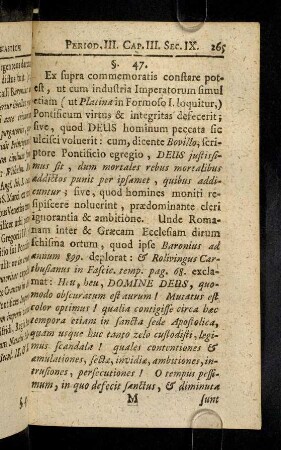 PERIOD. III. CAP. III. SEC. IX. 265
§. 47.
Ex supra commemoratis constare pot-
est, ut cum industria Imperatorum simul
etiam (ut Platina in Formoso I. loquitur,)
Pontificum virtus & integritas defecerit;
sive, quod DEUS hominum peccata sic
ulcisci voluerit: cum, dicente Bovillo, scri-
ptore Pontificio egregio, DEUS justissi-
mus sit, dum mortales rebus mortalibus
addictos punit per ipsamet, quibus addi-
cuntur; sive, quod homines moniti re-
sipiscere noluerint, prædominante cleri
ignorantia & ambitione. Unde Roma-
nam inter & Græcam Ecclesiam dirum
schisma ortum, quod ipse Baronius ad
annum 899. deplorat: & Rolivingus Car-
thusianus in Fascic. temp. pag. 68. excla-
mat: Heu, heu, DOMINE DEUS, quo-
modo obscuratum est aurum! Mutatus est
color optimus! qualia contigisse circa hæc
tempora etiam in sancta sede Apostolica,
quam usque huc tanto zelo custodisti, legi-
mus scandala! quales contentiones &
æmulationes, sectæ, invidiæ, ambitiones, in-
trusiones, persecutiones! O tempus pessi-
mum, in quo defecit sanctus, & diminutæ
M sunt